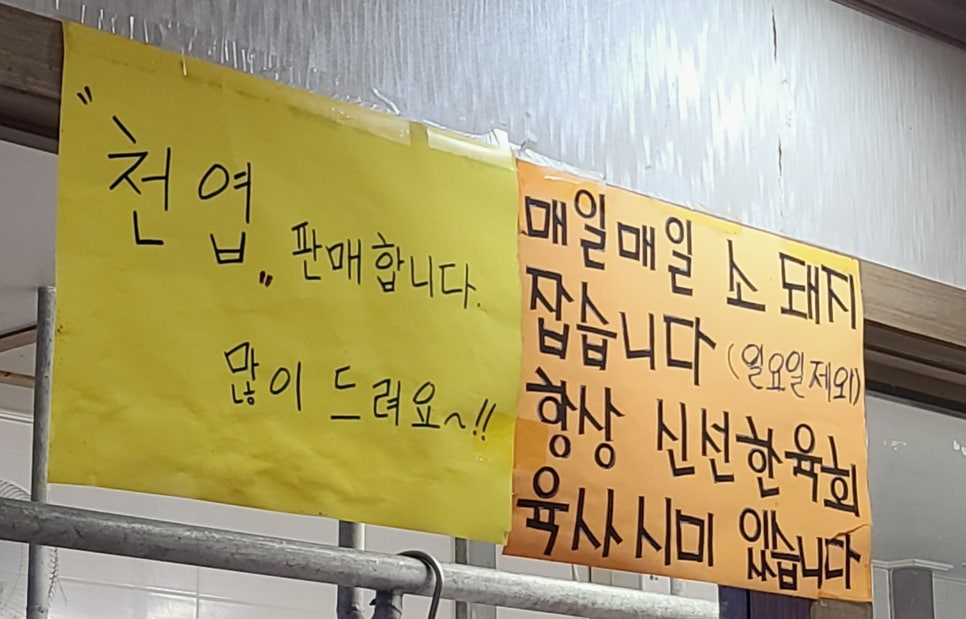 "천엽" 판매합니다.
많이 드려요~!!
매일매일 소 돼지
잡습니다 (일요일제외)
항상 신선한육회
육사시미 있습니다